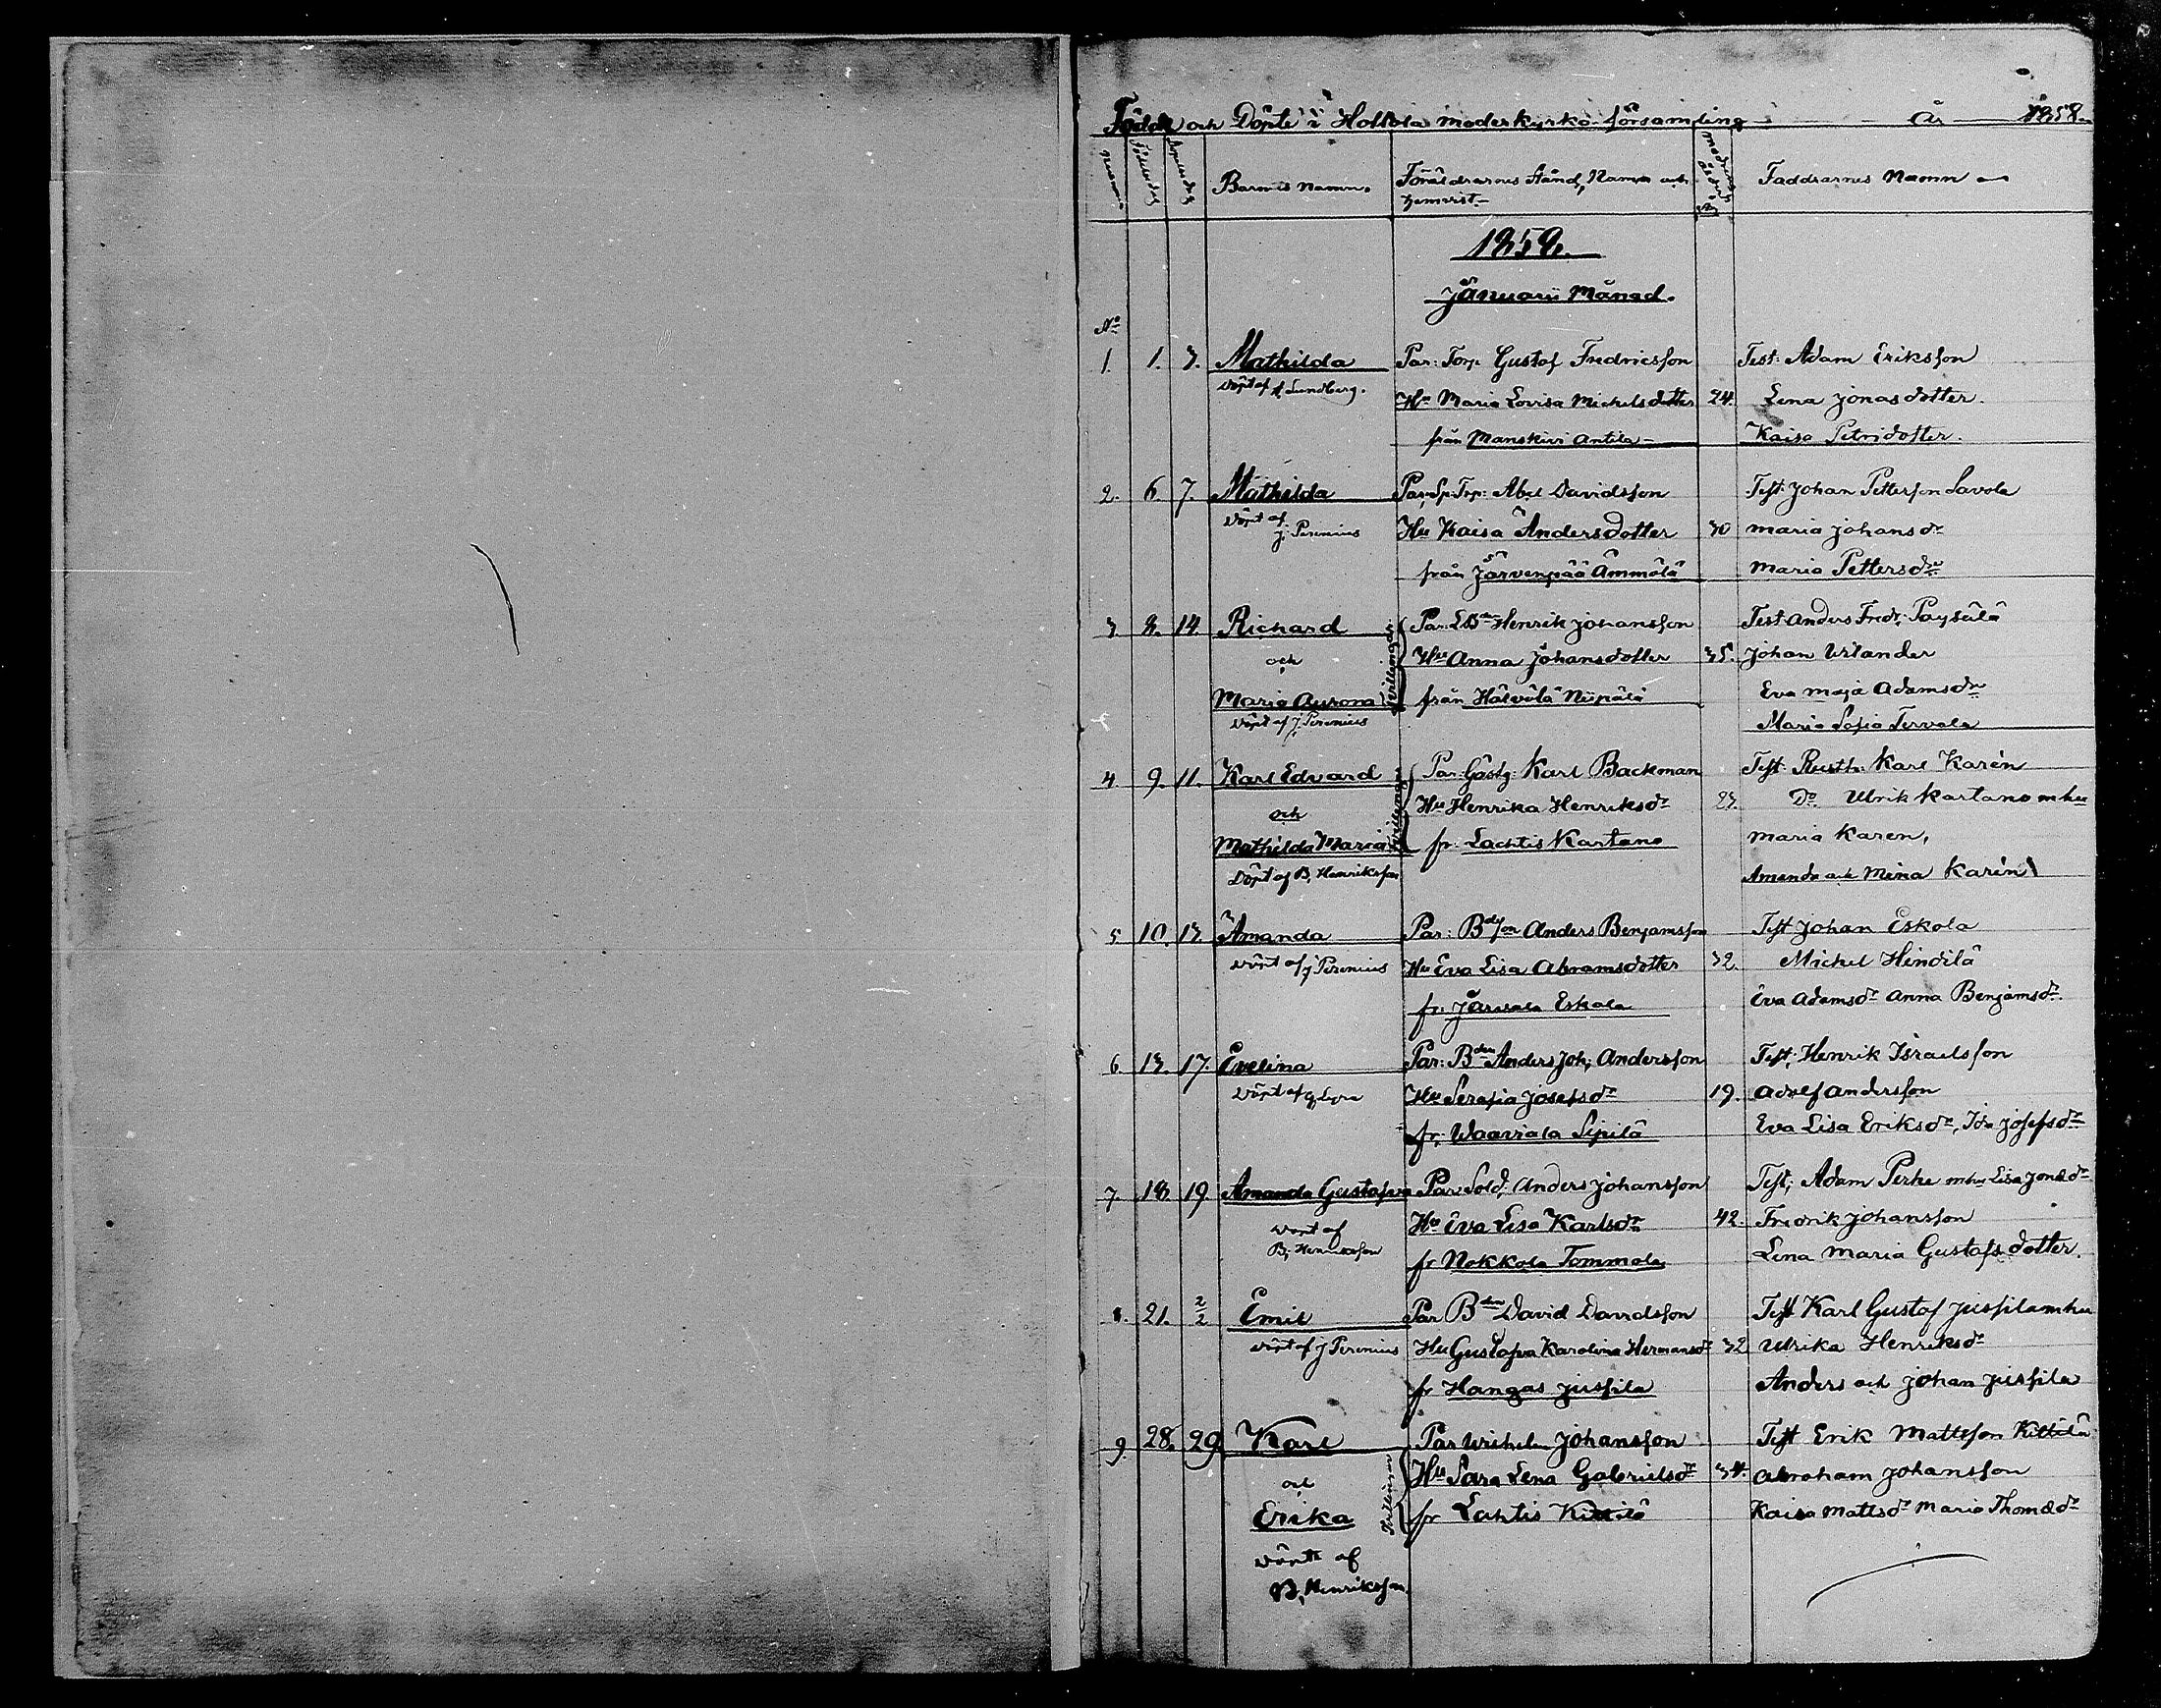 Födde och Döpte i Hollola moderkyrko församling År 1858.
Numero Födelsedag Döpelsedag Barnets namn. Föräldrarnes Stånd, Namn och Modrens ålder Faddrarnes Namn
hemvist.
1858.
Januarii Månad.
No
1. 1. 3. Mathilda Par: Torp. Gustaf Fredricsson Test: Adam Eriksson
döpt af Lundberg. Hu Maria Lovisa Michelsdotter 24. Lena Jonasdotter.
från Manskivi Antila Kaisa Petridotter.
2. 6. 7. Mathilda Par: Sp: Trp: Abel Davidsson Test: Johan Petterson Lavola
döpt af J. Perenius Hu Kaisa Andersdotter 30 Maria Johansdr
från Järvenpää Ämmälä Maria Pettersdr
3 8. 14. Richard Par: LBden Henrik Johansson Test: Anders Fredr. Paysälä
och Hu Anna Johansdotter 35. Johan Urlander
Maria Aurora Tvillingar från Hälvälä Niipälä Eva Maja Adamsdr
döpt af J. Perenius Maria Sofia Tervala
4. 9. 11. Karl Edvard Par: Gästg: Karl Backman Test: Rusth: Karl Karén
och Tvillingar Hu Henrika Henriksdr 23. Do Ulrik Kartano m hu
Mathilda Maria fr: Lachtis Kartano Maria Karen,
Döpt af B. Henriksson Amanda och Mina Karén
5 10. 13. Amanda Par: Bdson Anders Benjamsson Test Johan Eskola
döpt af J Perenius Hu Eva Lisa Abramsdotter 32. Michel Hindilä
fr: Järvala Eskola Eva Adamsdr Anna Benjamsdr.
6. 13. 17. Evelina Par: Bden Anders Joh: Andersson Test: Henrik Israelsson
Döpt af Hu Serafia Josefsdr 19. Adolf Andersson
fr: Waaviala Sipilä Eva Lisa Eriksdr, Ida Josefsdr
7. 18. 19. Amanda Gustafva Par Sold: Anders Johansson Test; Adam Perhe m hu Lisa Jonædr
döpt af Hu Eva Lisa Karlsdr 42. Fredrik Johansson
B. Henriksson fr Nokkola Tommola Lena Maria Gustafsdotter.
8. 21. 2/2 Emil Par Bden David Davidsson Test Karl Gustaf Jussila m hu
döpt af J Perenius Hu Gustafva Karolina Hermansdr 32 Ulrika Henriksdr
fr Hangas Jussila Anders och Johan Jussila
9. 28. 29 Karl Par Wilhelm Johansson Test Erik Mattsson Kittilä
och Tvillingar Hu Sara Lena Gabrielsdr 34. Abraham Johansson
Erika fr Lahtis Kittilä Kaisa Mattsdr Maria Thomædr
döpte af
B. Henriksson.